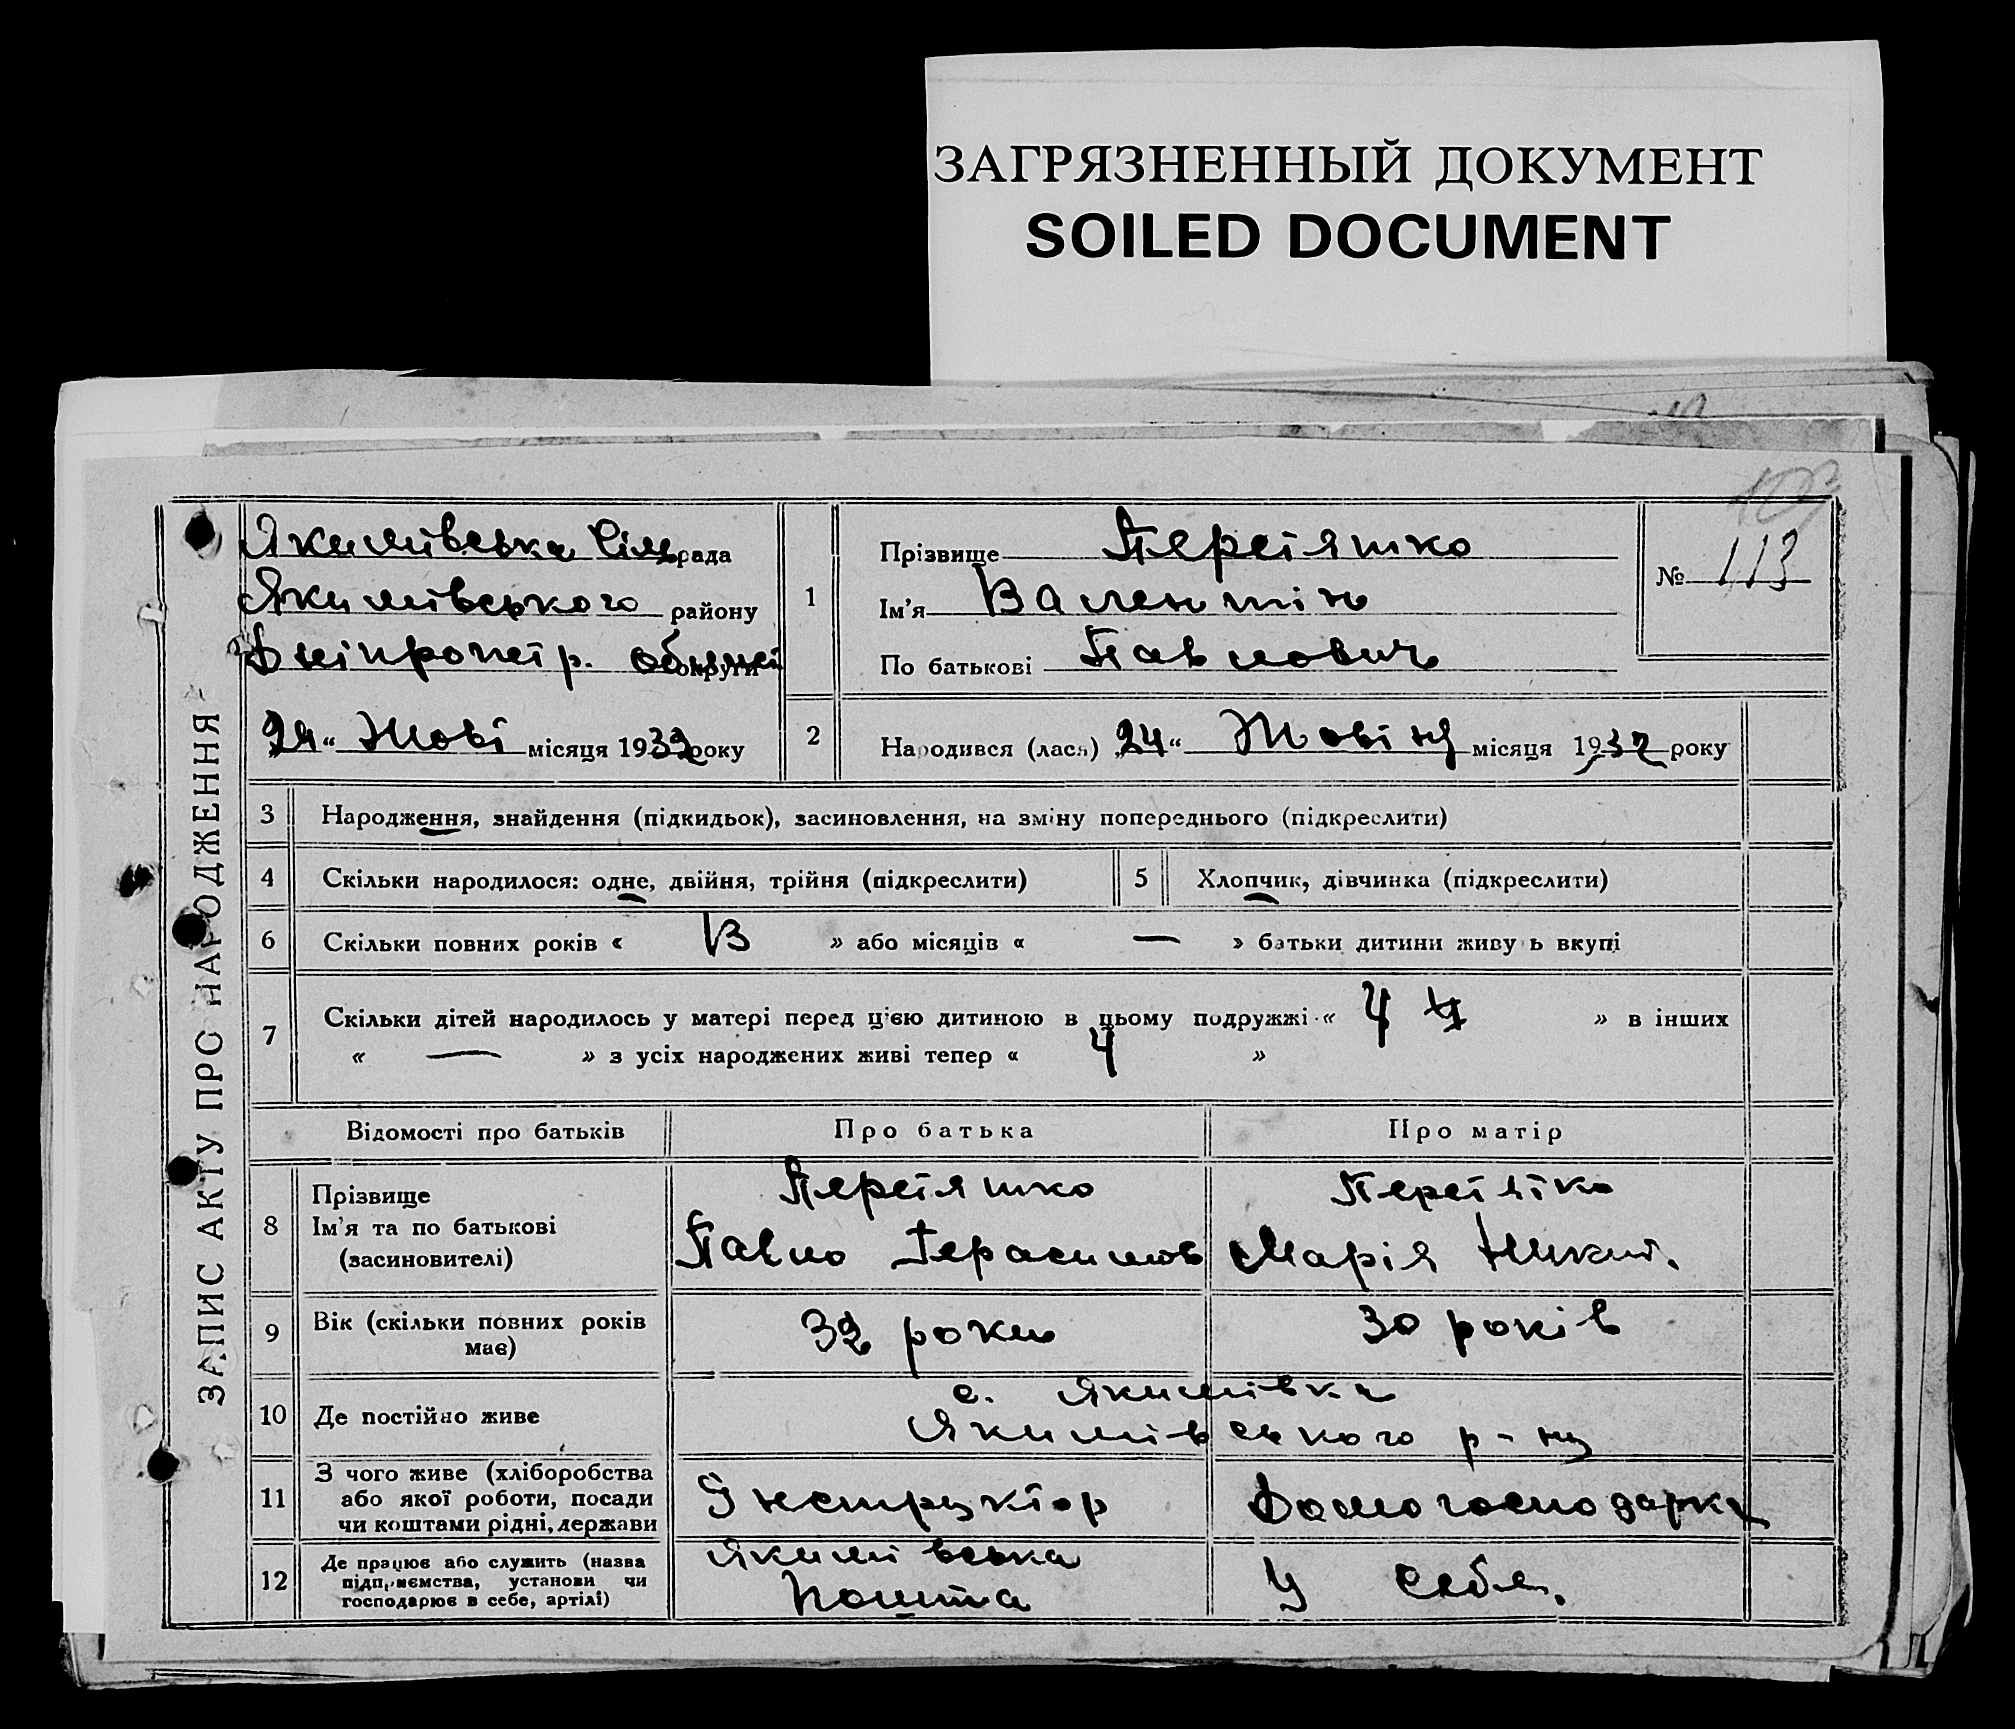 ЗАГРЯЗНЕННЫЙ ДОКУМЕНТ
SOILED DOCUMENT
ЗАПИС АКТУ ПРО НАРОДЖЕННЯ
Якимівська Сільрада
Якимівського району
Дніпропетр. області округи
24 " Жовт місяця 1932 року
1
Прізвище Перетятко
Ім'я Валентин
По батькові Павлович
№ 113
2
Народився (лася) 24 " Жовтня місяця 1932 року
3 Народження, знайдення (підкидьок), засиновлення, на зміну попереднього (підкреслити)
4 Скільки народилося: одне, двійня, трійня (підкреслити) 5 Хлопчик, дівчинка (підкреслити)
6 Скільки повних років « 13 » або місяців « — » батьки дитини живуть вкупі
7 Скільки дітей народилось у матері перед цією дитиною в цьому подружжі « 4 » в інших
« — » з усіх народжених живі тепер « 4 »
Відомості про батьків Про батька Про матір
8 Прізвище
Ім'я та по батькові
(засиновителі)
Перетятко
Павло Герасимов
Перетятко
Марія Никит.
9 Вік (скільки повних років
має)
32 роки
30 років
10 Де постійно живе
с. Якимівка
Якимівського р-ну
11 З чого живе (хліборобства
або якої роботи, посади
чи коштами рідні, держави
Інструктор
Домогосподарка
12 Де працює або служить (назва
підприємства, установи чи
господарює в себе, артілі)
Якимівська
пошта
У себе.